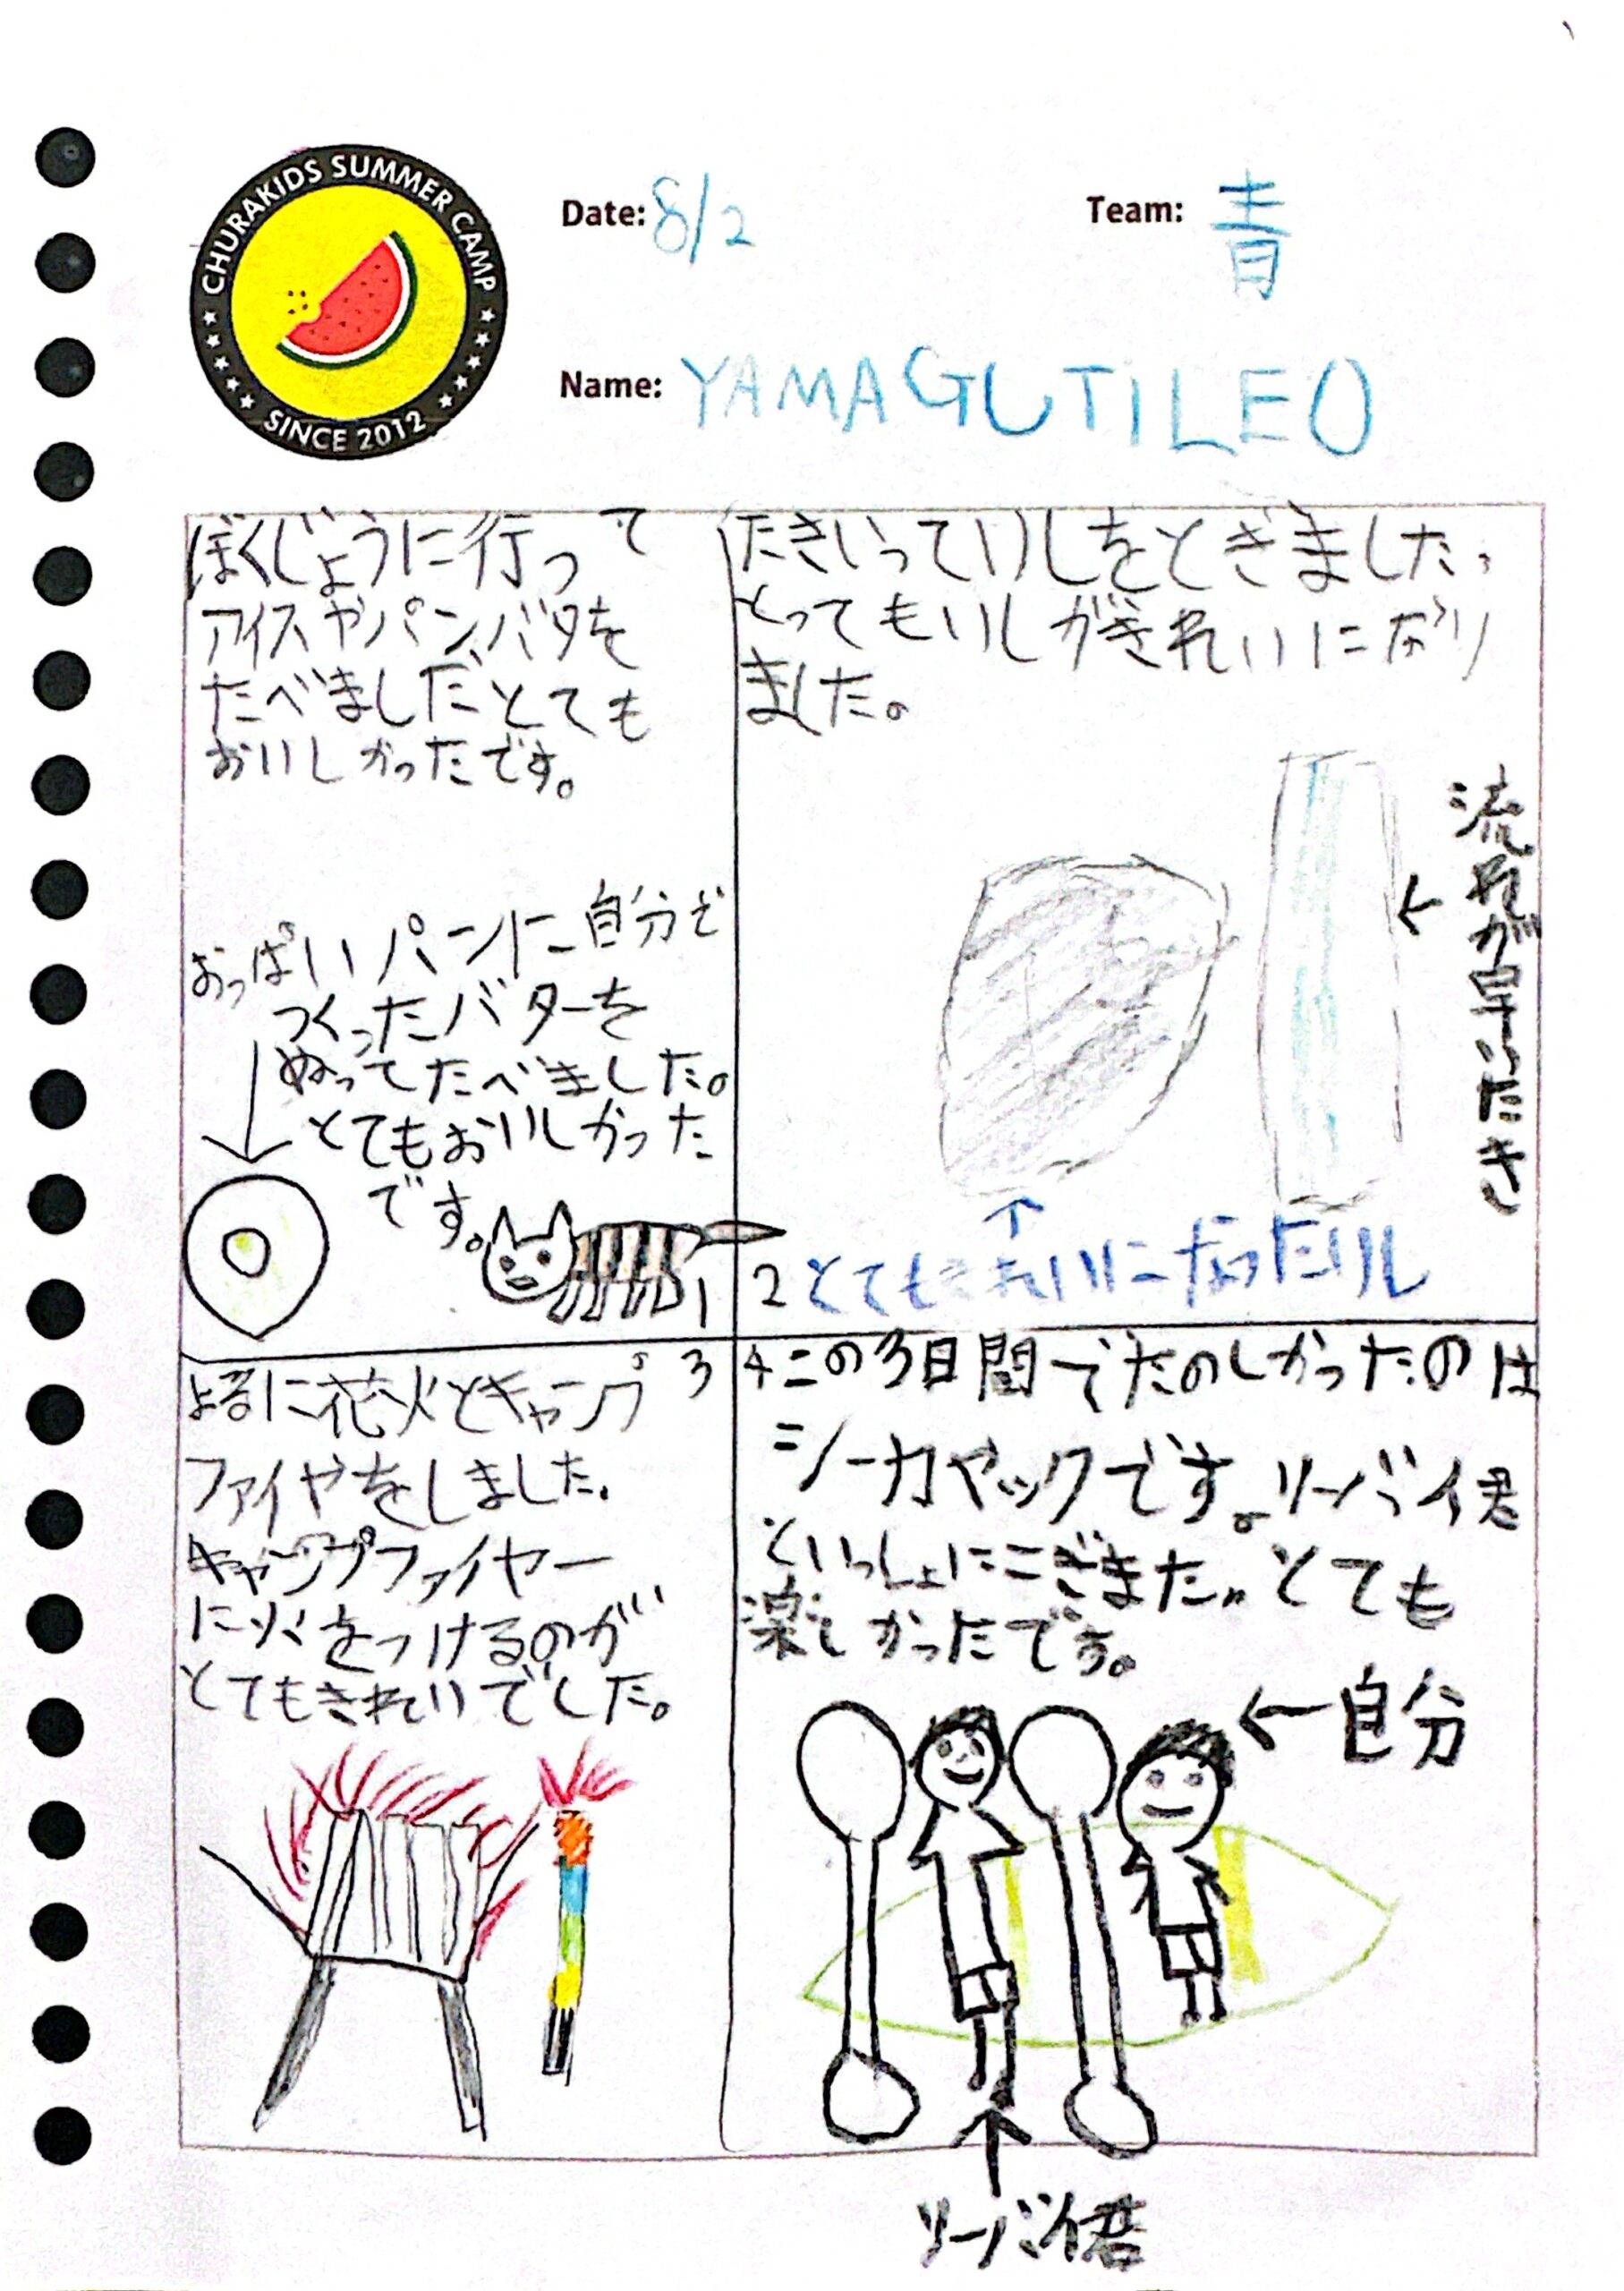 CHURAKIDS SUMMER CAMP
SINCE 2012
Date: 8/2
Team: 青
Name: YAMAGUTI LEO
ぼくじょうに行って
アイスやパン、バタを
たべましだ、とても
おいしかったです。
おっぱいパンに自分で
つくったバターを
ぬってたべました。
とてもおいしかった
です。
1
たきいっていしをとぎました、
とってもいしがきれいになり
ました。
流れが早いたき
2 とてもきれいになったいし
よるに花火とキャンプ 3
ファイやをしました。
キャンプファイヤー
に火をつけるのが
とてもきれいでした。
4 この3日間でたのしかったのは
シーカヤックです。リーバイ君
といっしょにこぎまた。とても
楽しかったです。
自分
リーバイ君